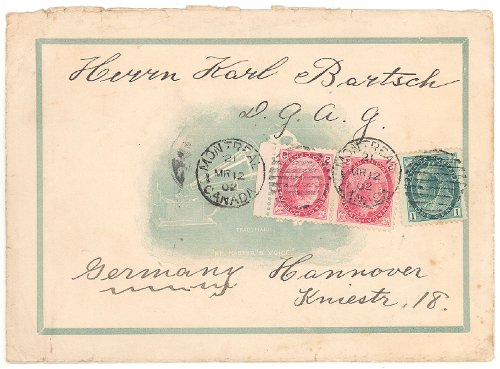 Herrn Karl Bartsch
D. G. A. G.
MONTREAL
21
MR 12
02
CANADA
MONTREAL
21
MR 12
02
2
2
1
1
TRADE MARK
MASTER'S VOICE
Germany Hannover
Kniestr. 18.